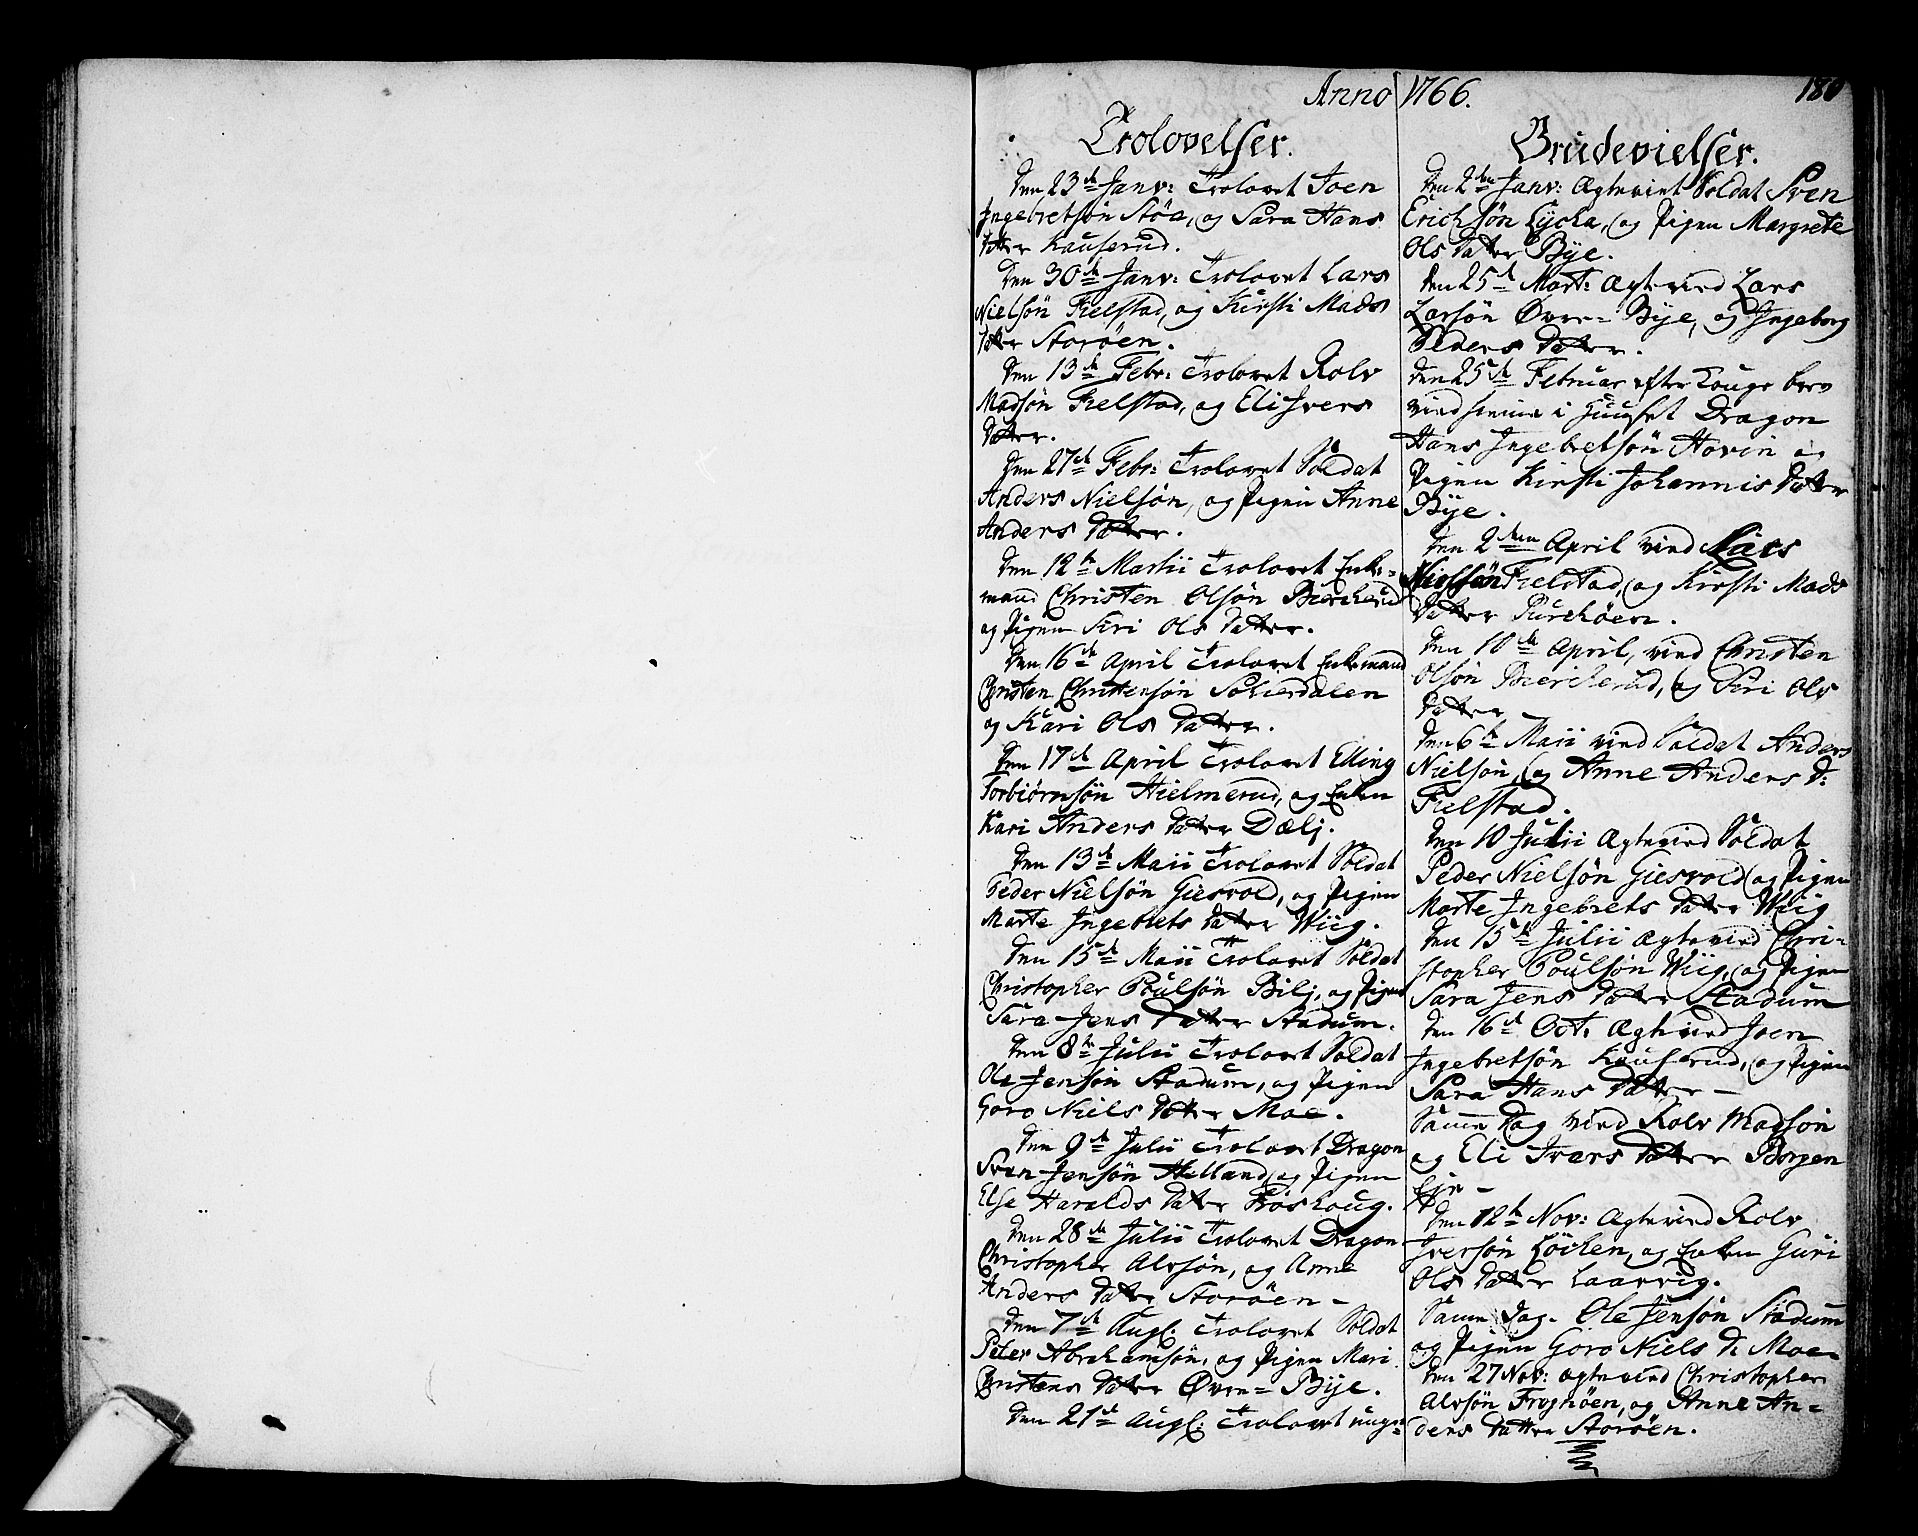 Anno 1766.
180
Trolovelser.
Den 23de Janv: Trolovet Joen
Ingebretsøn Støa, og Sara Hans
Datter Kauserud.
Den 30de Janv: Trolovet Lars
Nielsøn Fielstad, og Kirsti Mads
Datter Storøen.
Den 13de Febr: Trolovet Rolv
Madsøn Fielstad, og Eli Ivers
Datter.
Den 27de Febr: Trolovet Soldat
Anders Nielsøn, og Pigen Anne
Anders Datter.
Den 12te Martii Trolovet Enke-
mand Christen Olsøn Bierkerud
og Pigen Siri Ols Datter.
Den 16de April Trolovet Enkemand
Christen Christensøn
og Kari Ols Datter.
Den 17de April Trolovet Elling
Torbiørnsøn Hielmerud, og Enken
Kari Anders Datter Dælj.
Den 13de Maii Trolovet Soldat
Peder Nielsøn Giesvold, og Pigen
Marte Ingebrets Datter Wiig.
Den 15de Maii Trolovet Soldat
Christopher Poulsøn Bilj, og Pigen
Sara Jens Datter Stadum.
Den 8de Julii Trolovet Soldat
Ole Jensøn Stadum, og Pigen
Goro Niels Datter Moe.
Den 9de Julii Trolovet Dragon
Sven Jensøn Helland, og Pigen
Else Haralds Datter Frøshoug.
Den 28de Julii Trolovet Dragon
Christopher Alvsøn, og Anne
Anders Datter Storøen -
Den 7de Augl: Trolovet Soldat
Peter Abrahamsøn, og Pigen Mari
Christens Datter Øvre= Bye.
Den 21de Augl: Trolovet unge=
Brudevielser.
Den 2den Janv: Ægteviet Soldat Sven
Erichsøn Lycka, og Pigen Margrete
Ols Datter Bye.
Den 25de Mart: Ægtevied Lars
Larsøn Øvre= Bye, og Ingeborg
Peders Datter.
Den 25de Februar efter Konge brev
vied hiemme i Huuset Dragon
Hans Ingebretsøn Hovin og
Pigen Kirsti Johannis Datter
Bye.
Den 2den April vied Lars
Nielsøn Fielstad, og Kirsti Mads
Datter Purkøen.
Den 10de April, vied Christen
Olsøn Bierkerud, og Siri Ols
Datter
Den 6te Maii vied Soldat Anders
Nielsøn, og Anne Anders D:
Fielstad.
Den 10 Julii Ægtevied Soldat
Peder Nielsøn Giesvold, og Pigen
Marte Ingebrets Datter Wiig
Den 15de Julii Ægtevied Chri-
stopher Poulsøn Wiig, og Pigen
Sara Jens Datter Stadum
Den 16de Oct: Ægtevied Joen
Ingebretsøn Kauserud, og Pigen
Sara Hans Datter -
Samme Dag vied Rolv Madsøn
og Eli Ivers Datter Borgen
Eje -
Den 12te Nov: Ægtevied Rolv
Iversøn Løcken, og Enken Guri
Ols Datter Laarvig.
Samme Dag. Ole Jensøn Stadum
og Pigen Goro Niels D: Moe-
Den 27 Nov: Ægtevied Christopher
Alvsøn Frognøen, og Anne An-
ders Datter Storøen.